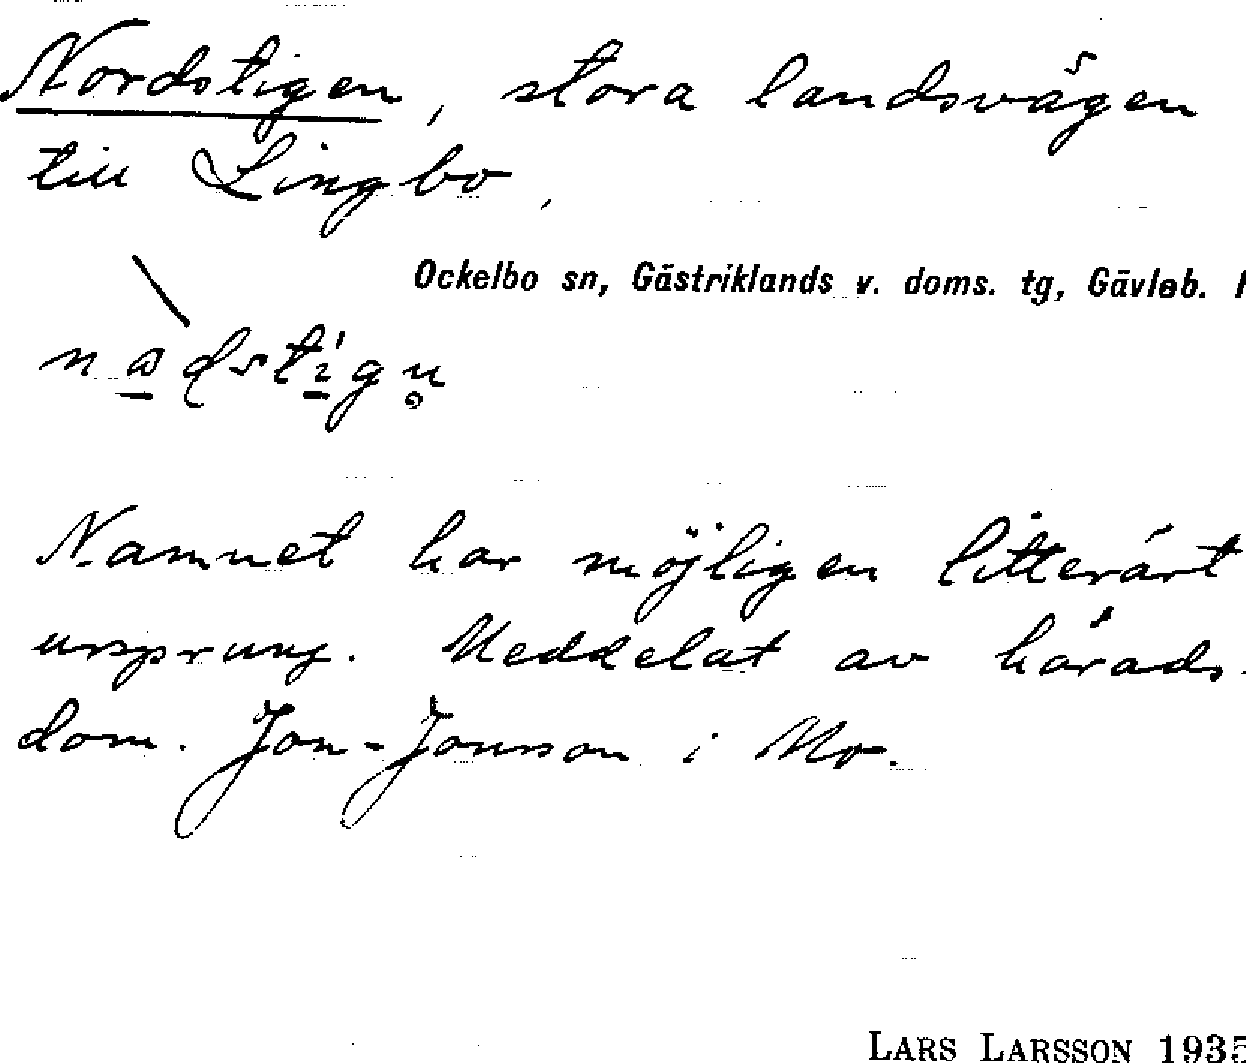 Nordstigen, stora landsvägen
till Lingbo,
Ockelbo sn, Gästriklands v. doms. tg, Gävleb.
Namnet har möjligen litterärt
ursprung. Meddelat av härads-
dom. Jon-Jonsson i Mo.
LARS LARSSON 1935